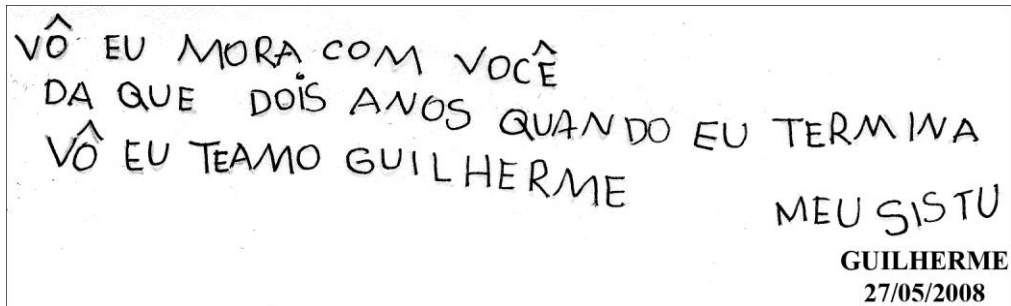 VÔ EU MORA COM VOCÊ
DA QUE DOIS ANOS QUANDO EU TERMINA
VÔ EU TEAMO GUILHERME
MEU SISTU
GUILHERME
27/05/2008